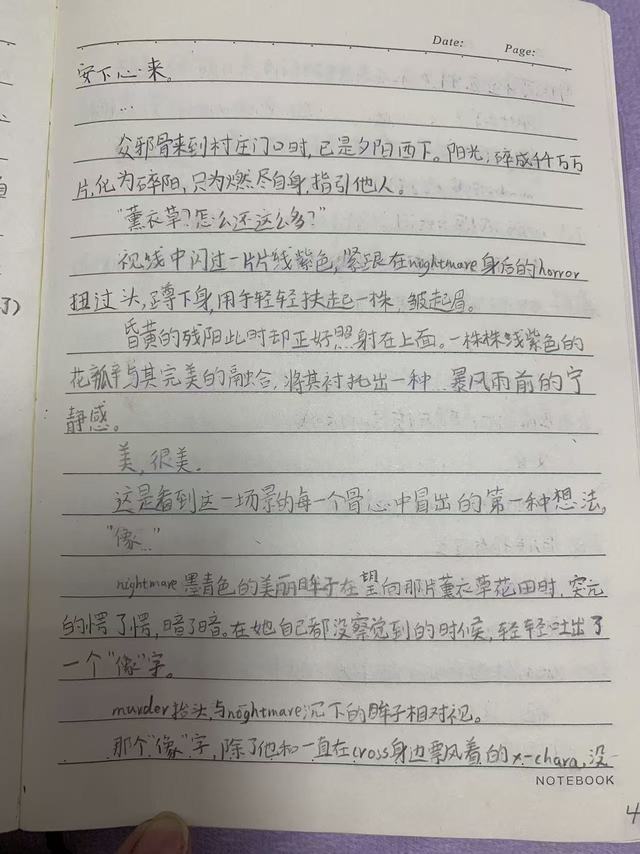 Date:
Page:
安下心来。
...
众邪骨来到村庄门口时,已是夕阳西下。阳光;碎成千万万
片,化为碎阳,只为燃尽自身,指引他人。
"薰衣草?怎么还这么多?"
视线中闪过一片片线紫色,紧跟在nightmare身后的horror
扭过头,蹲下身,用手轻轻扶起一株,皱起眉。
昏黄的残阳此时却正好照射在上面。一株株线紫色的
花瓣与其完美的融合,将其衬托出一种 暴风雨前的宁
静感。
美,很美.
这是看到这一场景的每一个骨心中冒出的第一种想法。
"像..."
nightmare墨青色的美丽眸子在望向那片薰衣草花田时,突兀
的愣了愣,暗了暗。在她自己都没察觉到的时候,轻轻吐出了
一个"像"字。
murder抬头,与nightmare沉下的眸子相对视。
那个"像"字,除了他和一直在cross身边飘风着的x-chara,没
NOTEBOOK
4
了)